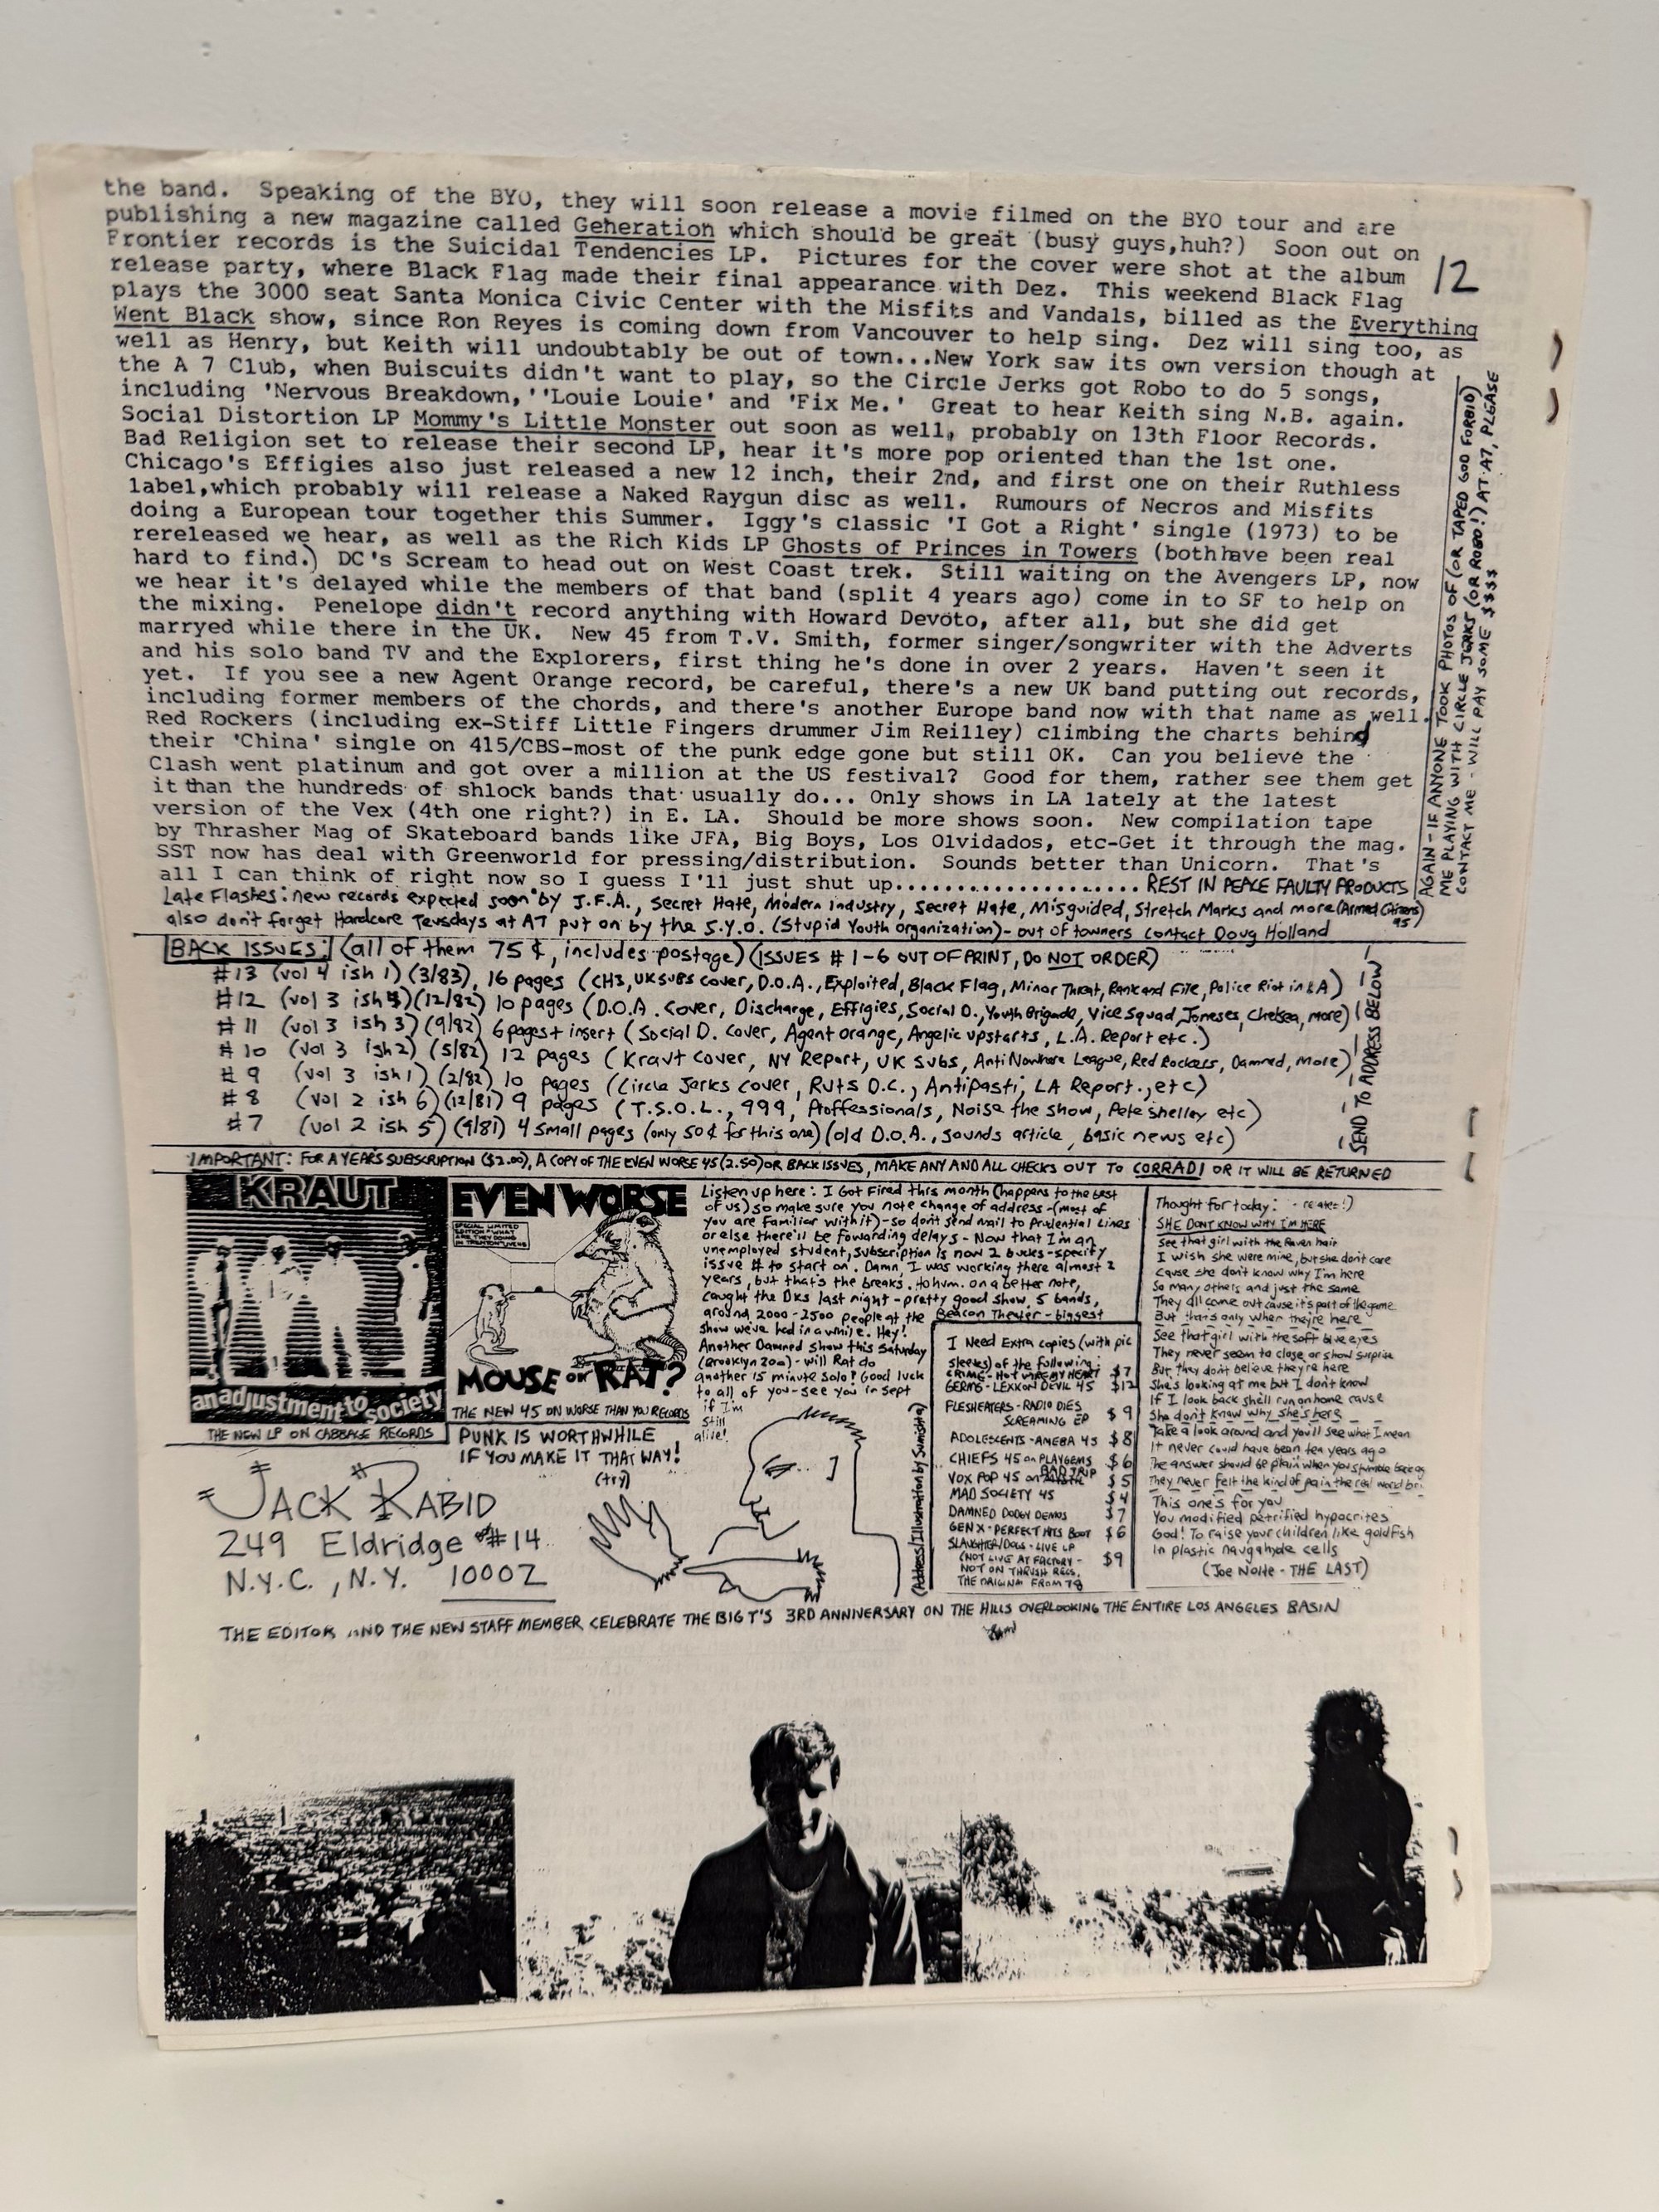 the band. Speaking of the BYO, they will soon release a movie filmed on the BYO tour and are
publishing a new magazine called Generation which should be great (busy guys,huh?) Soon out on
Frontier records is the Suicidal Tendencies LP. Pictures for the cover were shot at the album
release party, where Black Flag made their final appearance with Dez. This weekend Black Flag
plays the 3000 seat Santa Monica Civic Center with the Misfits and Vandals, billed as the Everything
Went Black show, since Ron Reyes is coming down from Vancouver to help sing. Dez will sing too, as
well as Henry, but Keith will undoubtably be out of town...New York saw its own version though at
the A 7 Club, when Buiscuits didn't want to play, so the Circle Jerks got Robo to do 5 songs,
including 'Nervous Breakdown,''Louie Louie' and 'Fix Me.' Great to hear Keith sing N.B. again.
Social Distortion LP Mommy's Little Monster out soon as well, probably on 13th Floor Records.
Bad Religion set to release their second LP, hear it's more pop oriented than the 1st one.
Chicago's Effigies also just released a new 12 inch, their 2nd, and first one on their Ruthless
label,which probably will release a Naked Raygun disc as well. Rumours of Necros and Misfits
doing a European tour together this Summer. Iggy's classic 'I Got a Right' single (1973) to be
rereleased we hear, as well as the Rich Kids LP Ghosts of Princes in Towers (both have been real
hard to find.) DC's Scream to head out on West Coast trek. Still waiting on the Avengers LP, now
we hear it's delayed while the members of that band (split 4 years ago) come in to SF to help on
the mixing. Penelope didn't record anything with Howard Devoto, after all, but she did get
marryed while there in the UK. New 45 from T.V. Smith, former singer/songwriter with the Adverts
and his solo band TV and the Explorers, first thing he's done in over 2 years. Haven't seen it
yet. If you see a new Agent Orange record, be careful, there's a new UK band putting out records,
including former members of the chords, and there's another Europe band now with that name as well.
Red Rockers (including ex-Stiff Little Fingers drummer Jim Reilley) climbing the charts behind
their 'China' single on 415/CBS-most of the punk edge gone but still OK. Can you believe the
Clash went platinum and got over a million at the US festival? Good for them, rather see them get
it than the hundreds of shlock bands that usually do... Only shows in LA lately at the latest
version of the Vex (4th one right?) in E. LA. Should be more shows soon. New compilation tape
by Thrasher Mag of Skateboard bands like JFA, Big Boys, Los Olvidados, etc-Get it through the mag.
SST now has deal with Greenworld for pressing/distribution. Sounds better than Unicorn. That's
all I can think of right now so I guess I'll just shut up...................... REST IN PEACE FAULTY PRODUCTS
Late Flashes: new records expected soon by J.F.A., Secret Hate, Modern Industry, Secret Hate, Misguided, Stretch Marks and more (Armed Citizens)
also don't forget Hardcore Teusdays at A7 put on by the S.Y.O. (Stupid Youth Organization)- out of towners contact Doug Holland
12
AGAIN - IF ANYONE TOOK PHOTOS OF (OR TAPED GOD FORBID)
ME PLAYING WITH CIRCLE JERKS (OR ROBO!) AT A7, PLEASE
CONTACT ME - WILL PAY SOME $$$$
BACK ISSUES: (all of them 75¢, includes postage) (ISSUES # 1-6 OUT OF PRINT, DO NOT ORDER)
#13 (vol 4 ish 1) (3/83), 16 pages (CH3, UK SUBS cover, D.O.A., Exploited, Black Flag, Minor Threat, Rank and File, Police Riot in LA)
#12 (vol 3 ish 4) (12/82) 10 pages (D.O.A. Cover, Discharge, Effigies, Social D., Youth Brigade, Vice Squad, Joneses, Chelsea, more)
#11 (vol 3 ish 3) (9/82) 6 pages + insert (Social D. cover, Agent orange, Angelic upstarts, L.A. Report etc.)
#10 (vol 3 ish 2) (5/82) 12 pages (Kraut cover, NY Report, UK SUBS, Anti Nowhere League, Red Rockers, Damned, more)
#9 (vol 3 ish 1) (2/82) 10 pages (Circle Jerks cover, Ruts D.C., Antipasti, LA Report., etc)
#8 (vol 2 ish 6) (12/81) 9 pages (T.S.O.L., 999, Proffessionals, Noise the show, Pete Shelley etc)
#7 (vol 2 ish 5) (9/81) 4 small pages (only 50¢ for this one) (old D.O.A., sounds article, basic news etc)
SEND TO ADDRESS BELOW
IMPORTANT: FOR A YEARS SUBSCRIPTION ($2.00), A COPY OF THE EVEN WORSE 45 (2.50) OR BACK ISSUES, MAKE ANY AND ALL CHECKS OUT TO CORRADI OR IT WILL BE RETURNED
KRAUT
an adjustment to society
THE NEW LP ON CABBAGE RECORDS
EVEN WORSE
MOUSE OR RAT?
THE NEW 45 ON WORSE THAN YOU RECORDS
PUNK IS WORTHWHILE
IF YOU MAKE IT THAT WAY!
(try)
Listen up here: I Got Fired this month (happens to the best
of us) so make sure you note change of address -(most of
you are familiar with it)-so don't send mail to Prudential Lines
or else there'll be fowarding delays - Now that I'm an
unemployed student, subscription is now 2 bucks-specify
issue # to start on. Damn, I was working there almost 2
years, but that's the breaks. Ho hum. on a better note,
caught the DKs last night - pretty good show. 5 bands,
around 2000-2500 people at the Beacon Theater - biggest
show we've had in a while. Hey!
Another Damned show this Saturday
(Brooklyn Zoo) - will Rat do
another 15 minute solo? Good luck
to all of you - see you in Sept
if I'm
still
alive!
I Need Extra copies (with pic
sleeves) of the following:
CRIME - HOT WIRE MY HEART $7
GERMS - LEXICON DEVIL 45 $12
FLESHEATERS - RADIO DIES
SCREAMING EP $9
ADOLESCENTS - AMEBA 45 $8
CHIEFS 45 on PLAYGEMS $6
VOX POP 45 on BAD TRIP $5
MAD SOCIETY 45 $4
DAMNED DODGY DEMOS $7
GEN X - PERFECT HITS BOOT $6
SLAUGHTER/DOGS - LIVE LP
(NOT LIVE AT FACTORY - $9
NOT ON THRUSH RECS.
THE ORIGINAL FROM 78
(Address/Illustration by Sumishta)
Thought for today:
SHE DONT KNOW WHY I'M HERE
See that girl with the Raven hair
I wish she were mine, but she don't care
Cause she don't know why I'm here
So many others and just the same
They all come out cause it's part of the game
But thats only when they're here
See that girl with the soft blue eyes
They never seem to close or show surprise
But they don't believe they're here
She's looking at me but I don't know
If I look back she'll run on home cause
She don't know why she's here
Take a look around and you'll see what I mean
It never could have been ten years ago
The answer should be plain when you stumble
They never felt the kind of pain the real world
This one's for you
You modified petrified hypocrites
God! To raise your children like goldfish
In plastic naugahyde cells
(Joe Nolte - THE LAST)
JACK RABID
249 Eldridge #14
N.Y.C., N.Y. 10002
THE EDITOR AND THE NEW STAFF MEMBER CELEBRATE THE BIG T'S 3RD ANNIVERSARY ON THE HILLS OVERLOOKING THE ENTIRE LOS ANGELES BASIN